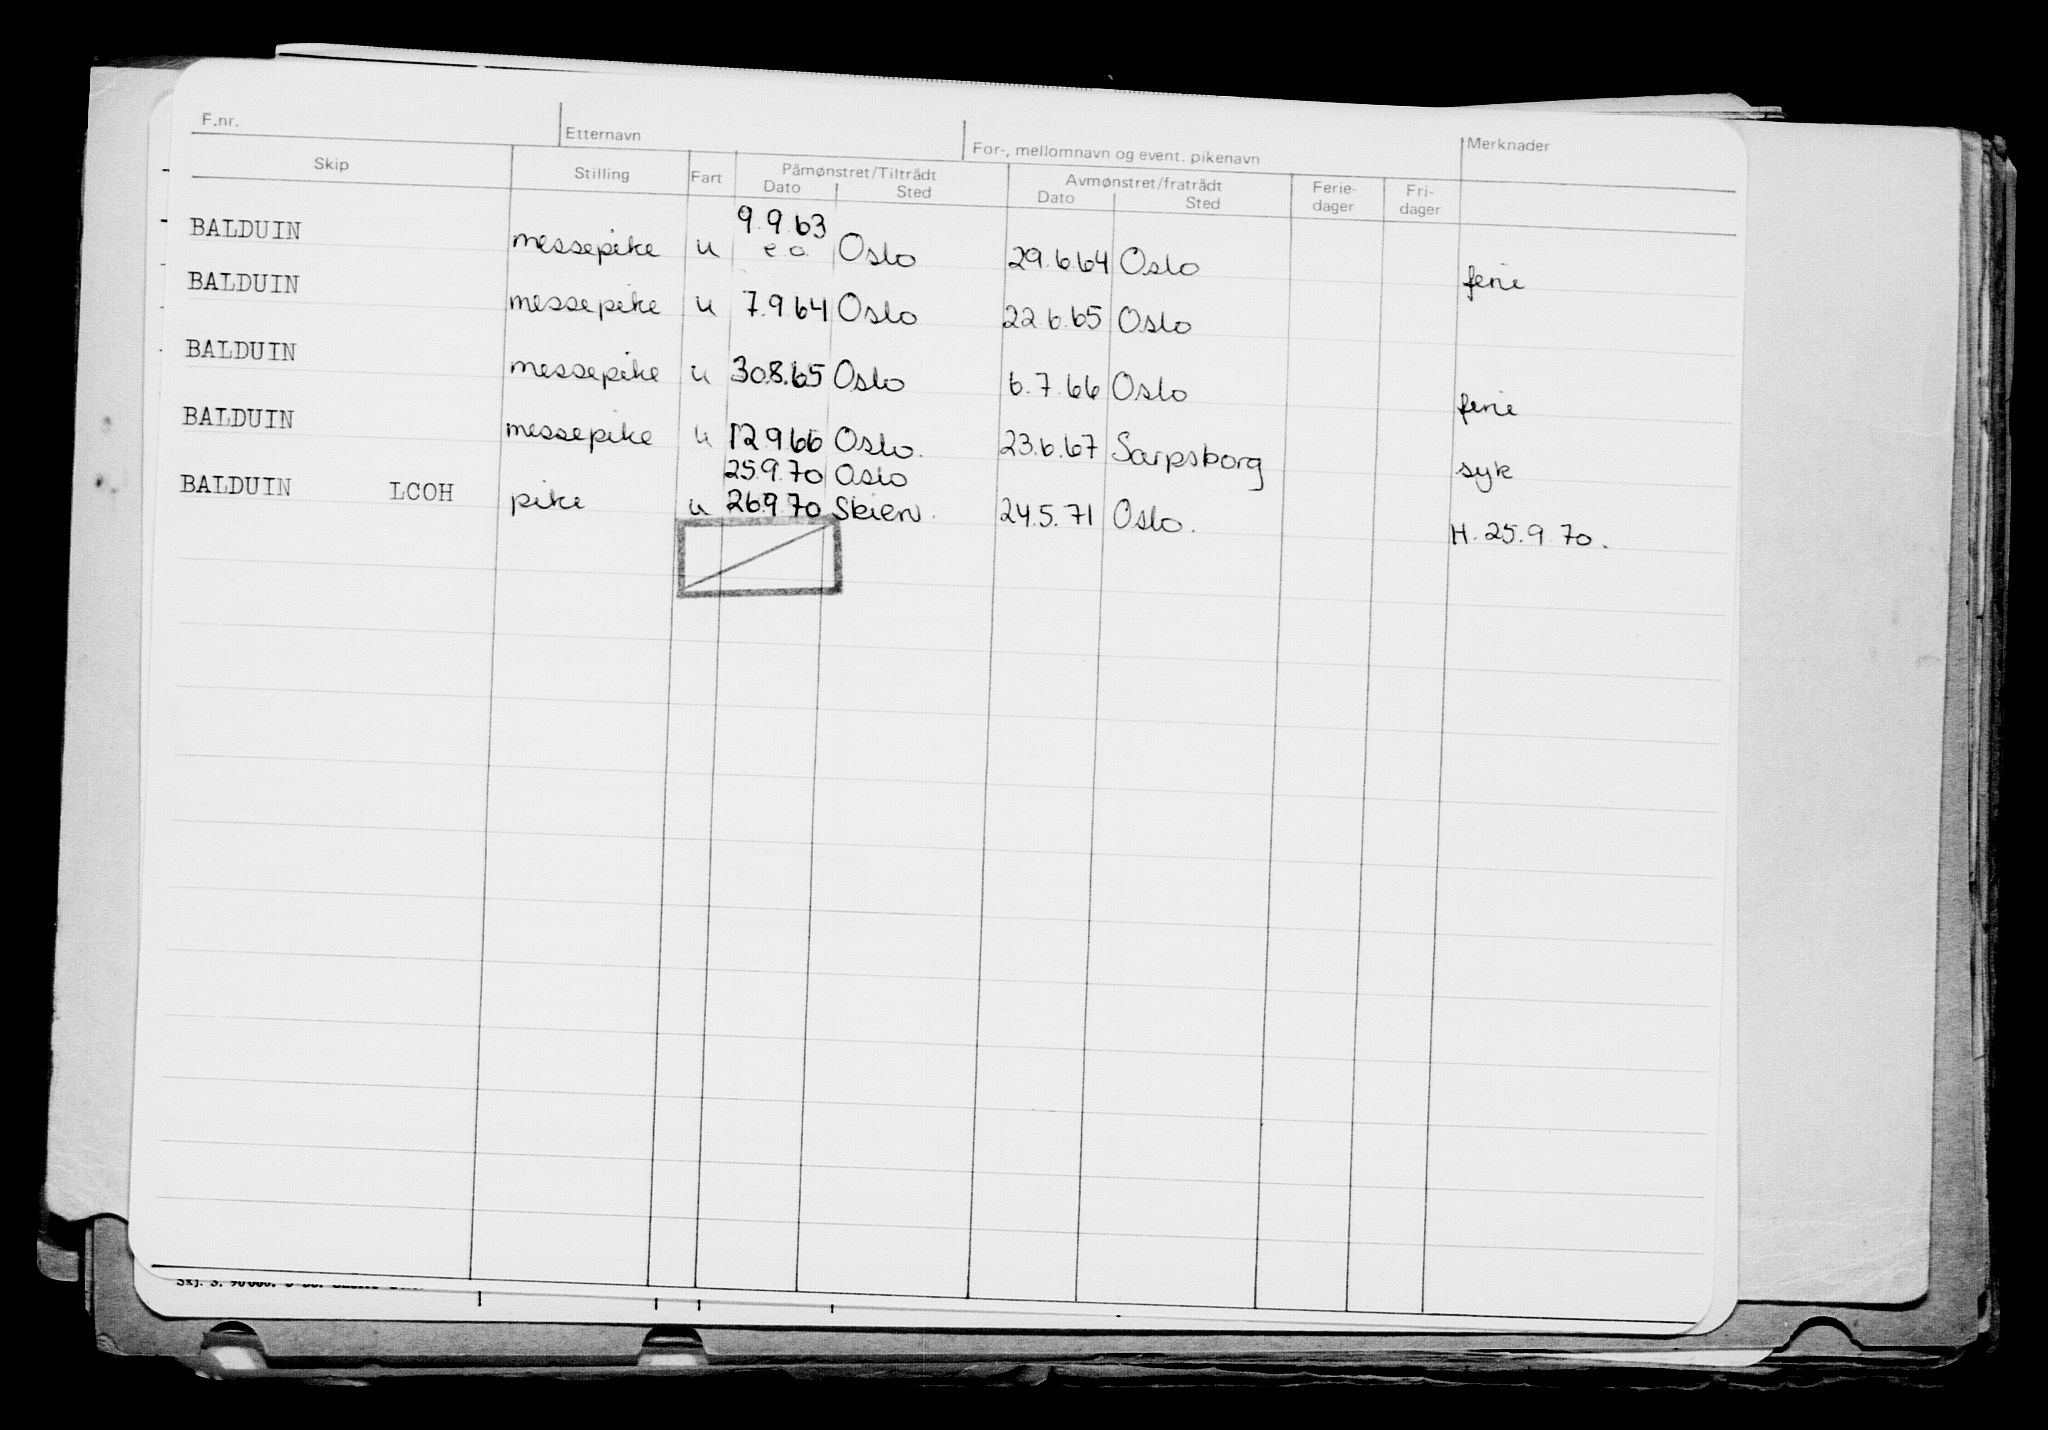 F.nr. Etternavn For-, mellomnavn og event. pikenavn Merknader
Skip Stilling Fart Påmønstret/Tiltrådt Avmønstret/fratrådt Ferie- Fri-
Dato Sted Dato Sted dager dager
9.9.63
BALDUIN messepike u e.o. Oslo 29.6.64 Oslo ferie
BALDUIN messepike u 7.9.64 Oslo 22.6.65 Oslo
BALDUIN messepike u 30.8.65 Oslo 6.7.66 Oslo ferie
BALDUIN messepike u 12.9.66 Oslo. 23.6.67 Sarpsborg syk
25.9.70 Oslo
BALDUIN LCOH pike u 26.9.70 Skien. 24.5.71 Oslo. H. 25.9.70.